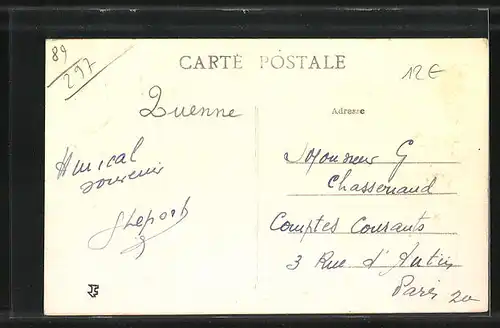 89
297
CARTE POSTALE
12€
Quenne
Adresse
Amical
souvenir
Monsieur G
Chassenaud
Comptes Courants
3 Rue d'Antin
Paris 2e